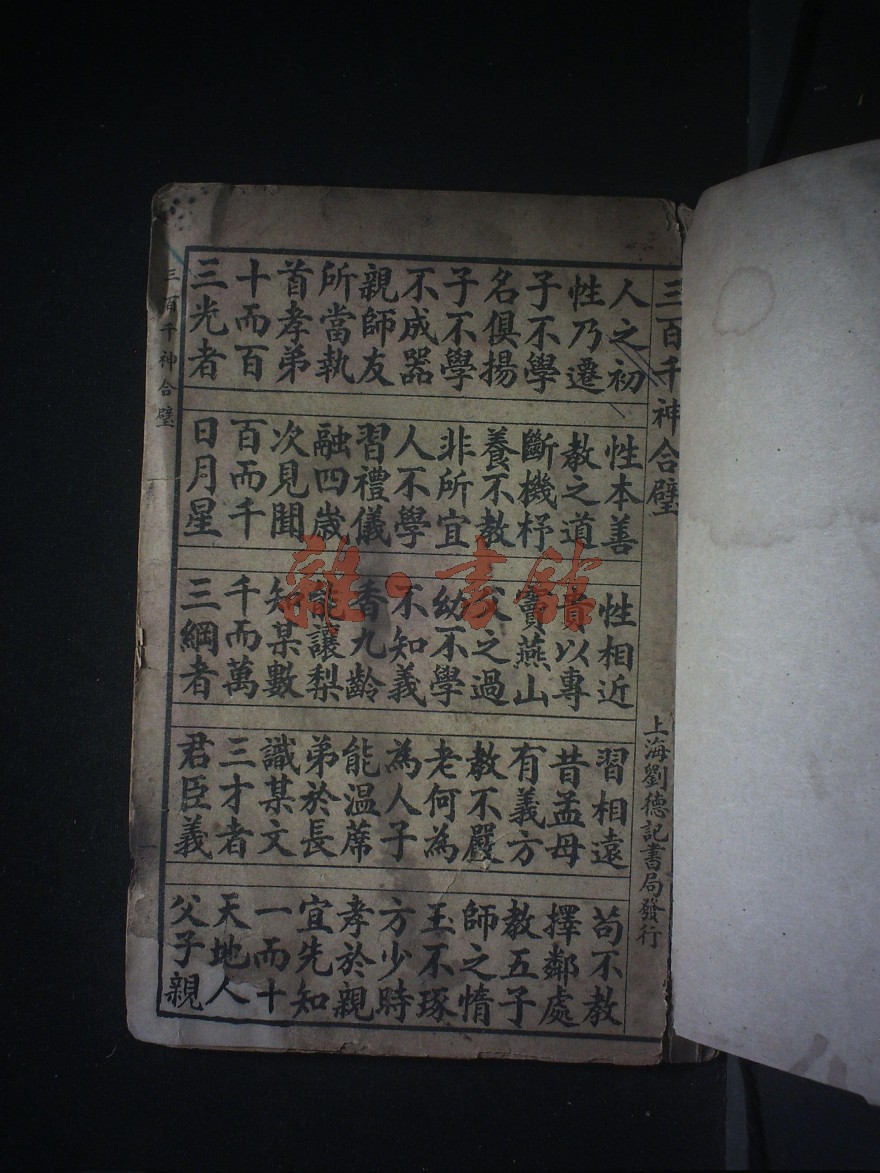 三百千神合璧
上海劉德記書局發行
人之初 性本善 性相近 習相遠 苟不教
性乃遷 教之道 貴以專 昔孟母 擇鄰處
子不學 斷機杼 竇燕山 有義方 教五子
名俱揚 養不教 父之過 教不嚴 師之惰
子不學 非所宜 幼不學 老何為 玉不琢
不成器 人不學 不知義 為人子 方少時
親師友 習禮儀 香九齡 能温蓆 孝於親
所當執 融四歲 能讓梨 弟於長 宜先知
首孝弟 次見聞 知某數 識某文 一而十
十而百 百而千 千而萬 三才者 天地人
三光者 日月星 三綱者 君臣義 父子親
三百千神合璧
一
雜·書館